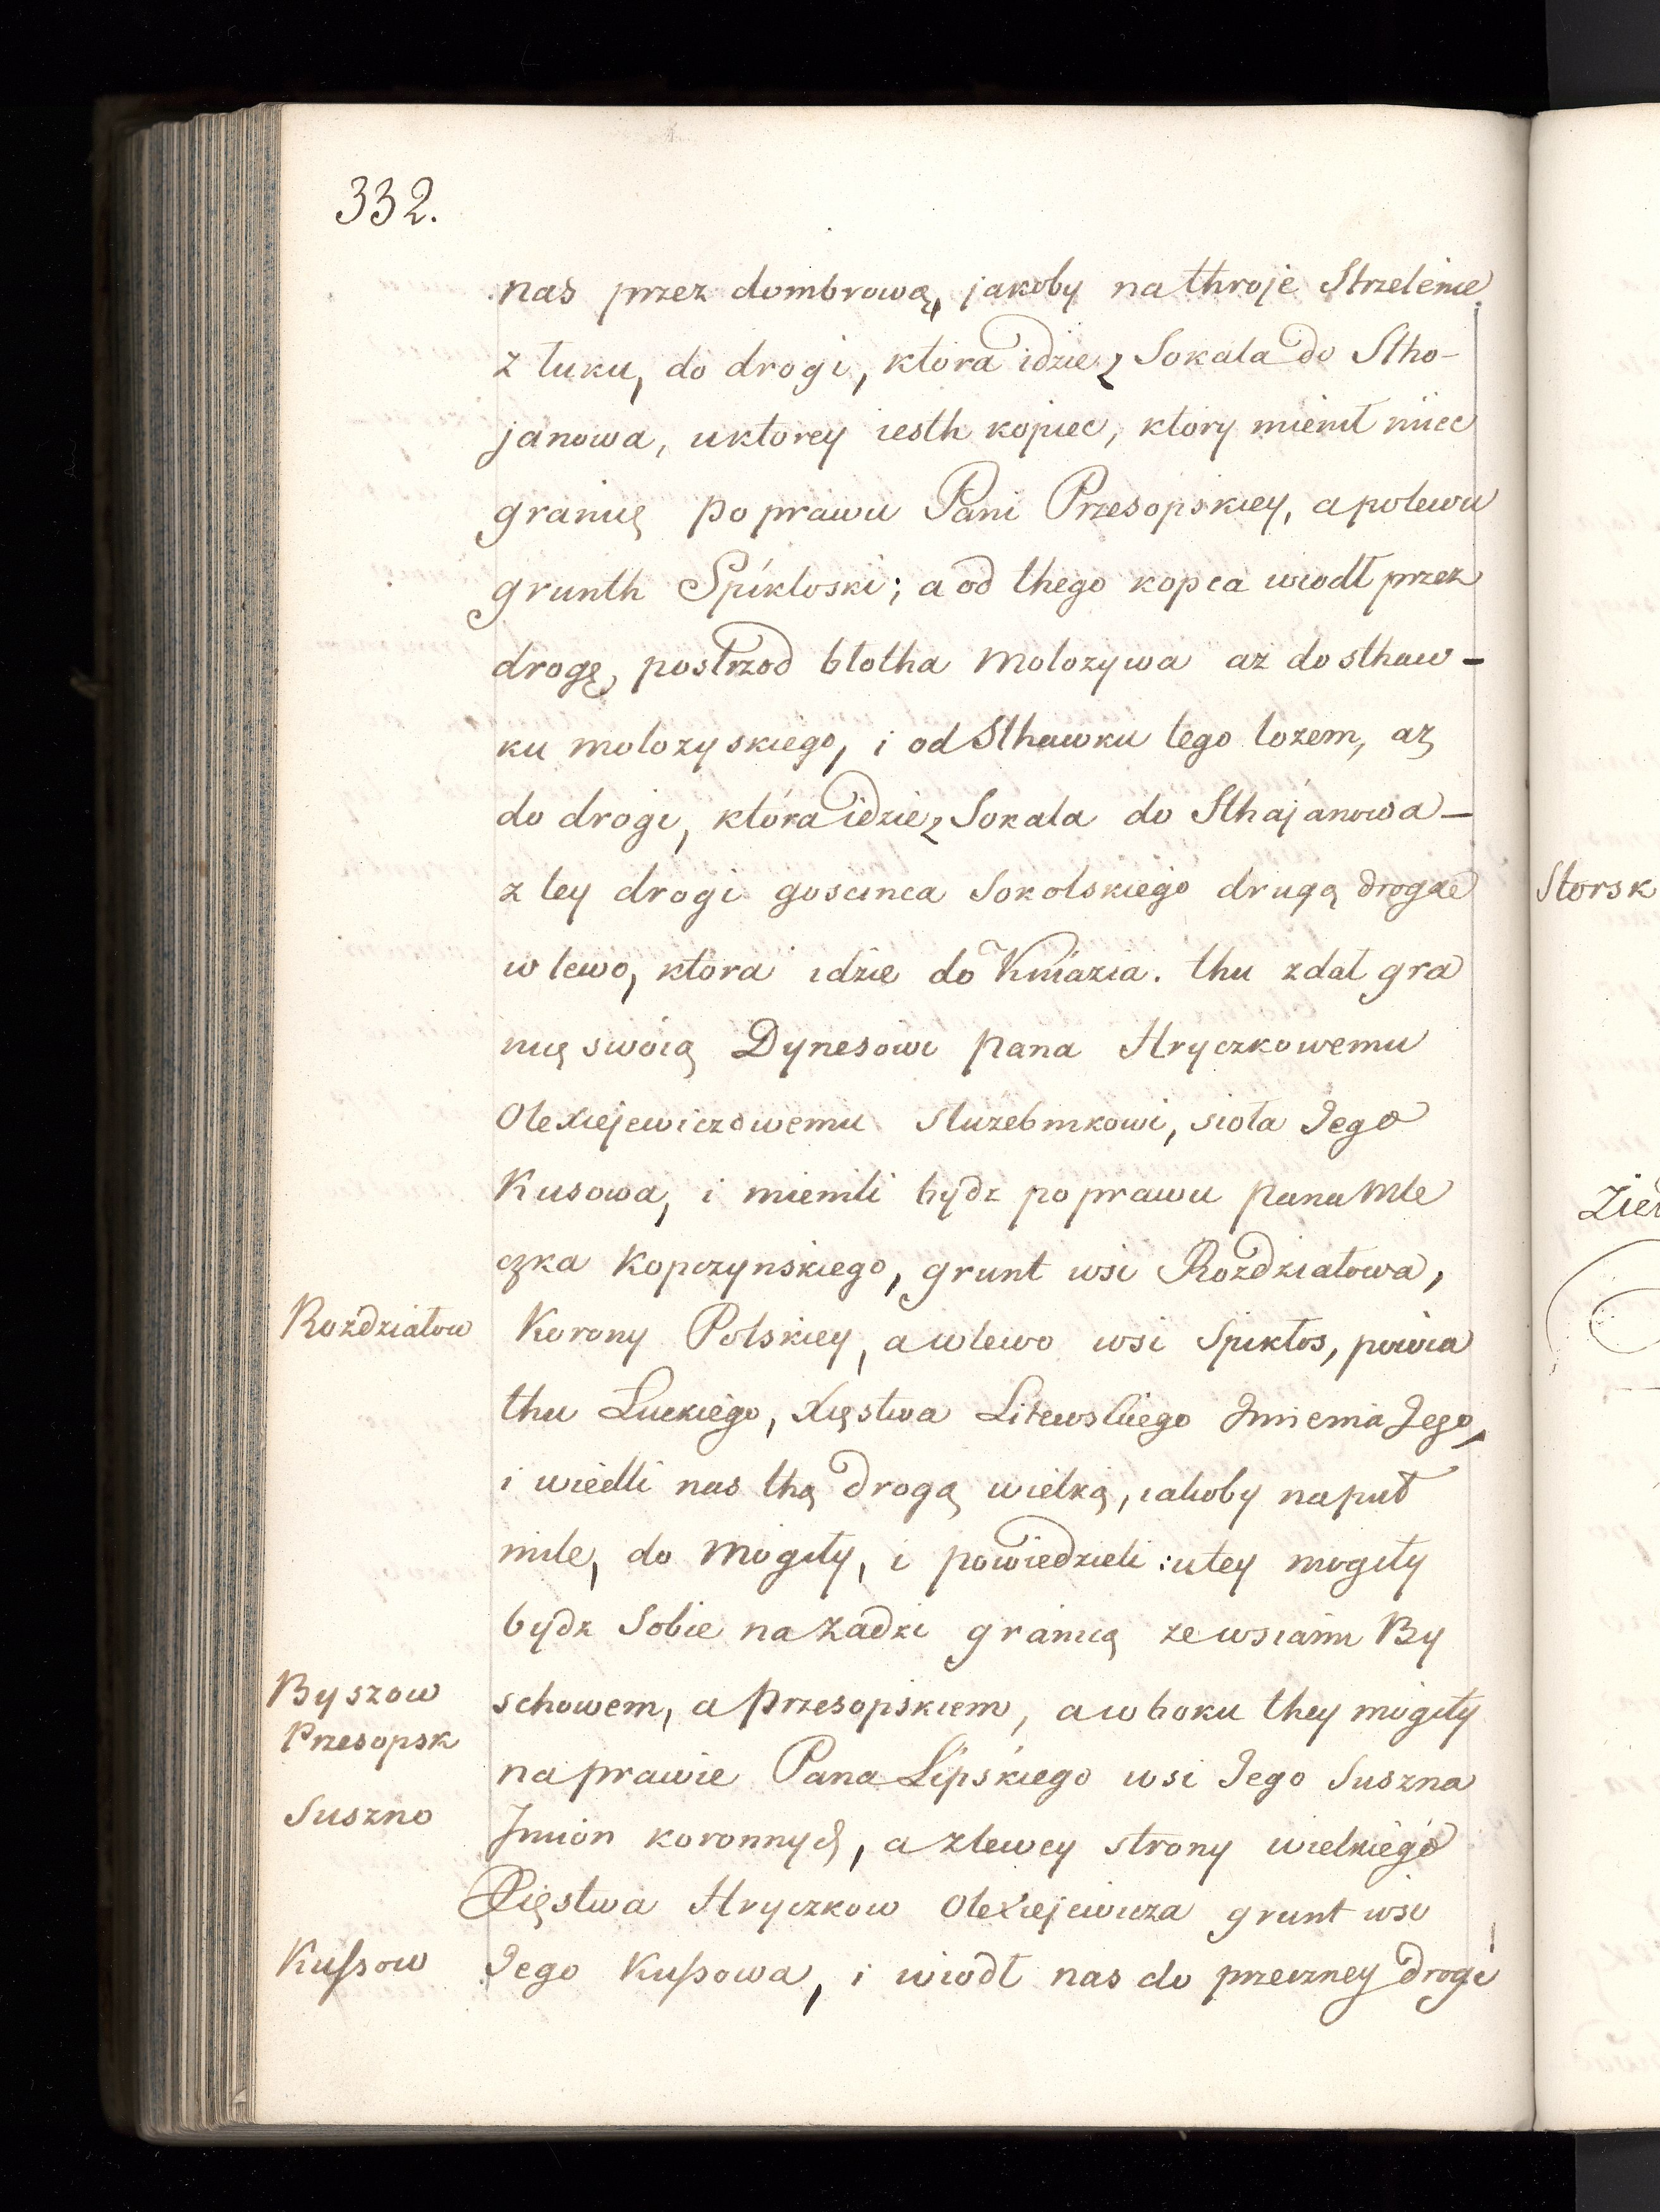 332.
nas przez dombrową, jakoby na throje Strzelenie
z łuku, do drogi, ktora idzie z Sokala do Stho-
janowa, u ktorey iesth kopiec, ktory mienił miec
granię po prawu Pani Przesopskiey, a po lewu
grunth Spikłoski; a od thego kopca wiodł przez
drogę, postrzod błotha Molozywa az do sthaw-
ku molozyskiego, i od Sthawku tego lozem, aż
do drogi, która idzie z Sokala do Sthajanowa —
z tey drogi goscinca Sokolskiego drugą drogae
w lewo, ktora idzie do Kniazia. thu zdał gra
nię swoią Dynesowi pana Hryczkowemu
Olexiejewiczowemu służebnikowi, sioła Jego
Kusowa, i mienili bydz po prawu pana Mle
czka Kopczynskiego, grunt wsi Rozdziałowa,
Rozdziałow
Korony Polskiey, a w lewo wsi Spikłos, powia
thu Łuckiego, Xięstwa Litewskiego Imienia Jego,
i wiedli nas thą drogą wielką, iakoby na puł
mile, do Mogiły, i powiedzieli: u tey mogiły
bydz Sobie na Zadzi granicą ze wsiami By
Byszow
schowem, a Przesopskiem, a w boku they mogiły
Przesopsk
na prawie Pana Lipskiego wsi Jego Suszna
Suszno
Jmion koronnych, a z lewey strony wielkiego
Xięstwa Hryczkow Olexiejewicza grunt wsi
Kußow
Jego Kußowa, i wiodł nas do przeczney drogi
Storsk